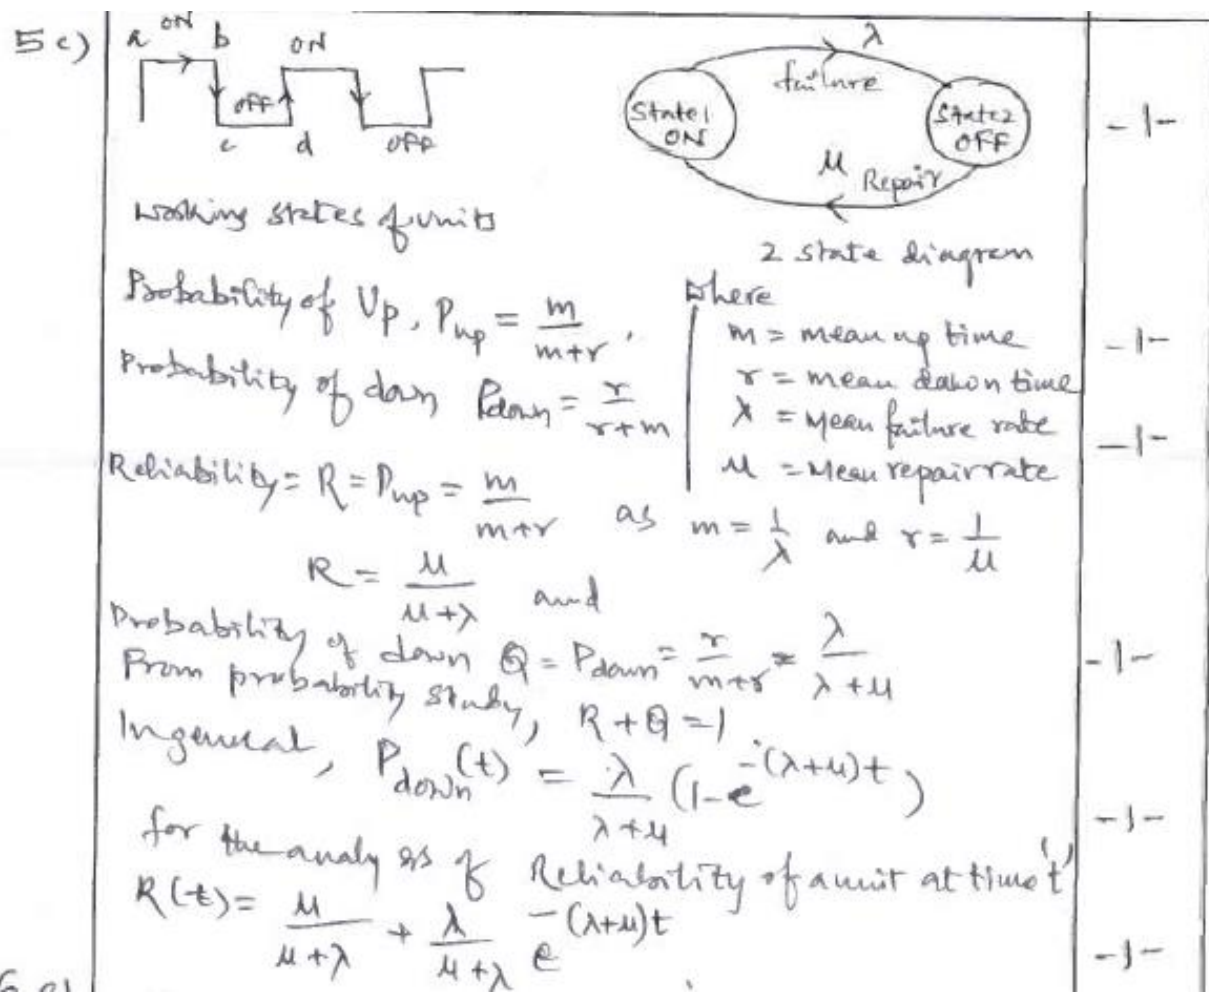 5 c)
a ON b ON
OFF
c d OFF
λ
failure
State 1
ON
State 2
OFF
μ Repair
-1-
working states of units
2 state diagram
Probability of Up, P_up = m/(m+r),
where
m = mean up time
-1-
Probability of down P_down = r/(r+m)
r = mean dawn time
λ = Mean failure rate
-1-
μ = Mean repair rate
Reliability = R = P_up = m/(m+r) as m = 1/λ and r = 1/μ
R = μ/(μ+λ) and
Probability of down Q = P_down = r/(m+r) = λ/(λ+μ)
-1-
From probability study, R + Q = 1
In general, P_down(t) = λ/(λ+μ) (1-e^-(λ+μ)t)
-1-
for the analysis of Reliability of a unit at time 't'
R(t) = μ/(μ+λ) + λ/(μ+λ) e^-(λ+μ)t
-1-